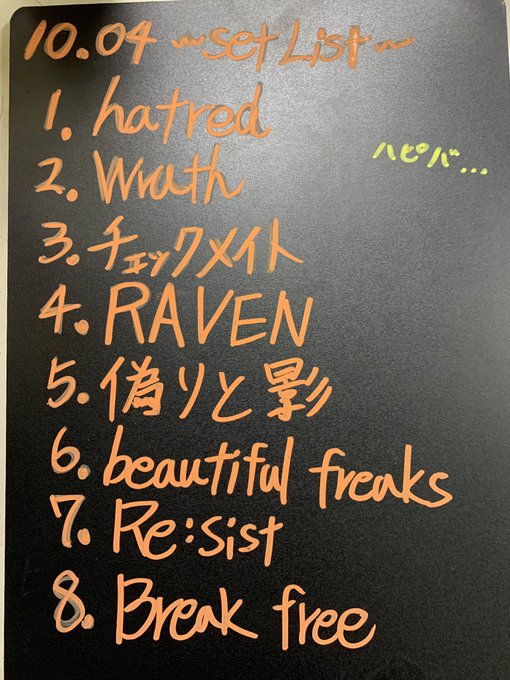 10.04 ~set List~
1. hatred
ハピバ...
2. Wrath
3. チェックメイト
4. RAVEN
5. 偽りと影
6. beautiful freaks
7. Re:sist
8. Break free